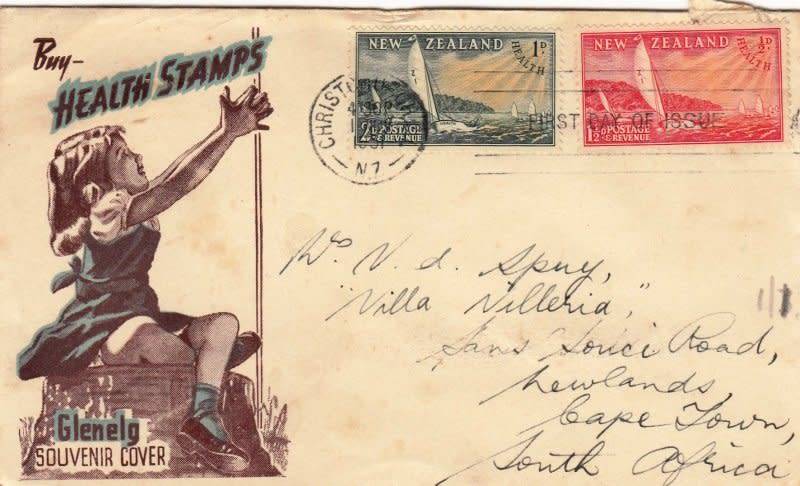 Buy-
HEALTH STAMPS
NEW ZEALAND
1D
HEALTH
2D POSTAGE
& REVENUE
NEW ZEALAND
½D
HEALTH
1½D POSTAGE
& REVENUE
CHRISTCHURCH
1951
N.Z.
FIRST DAY OF ISSUE
Mrs V. d. Spuy,
"Villa Villeria,"
Sans Souci Road,
Newlands,
Cape Town,
South Africa
Glenelg
SOUVENIR COVER